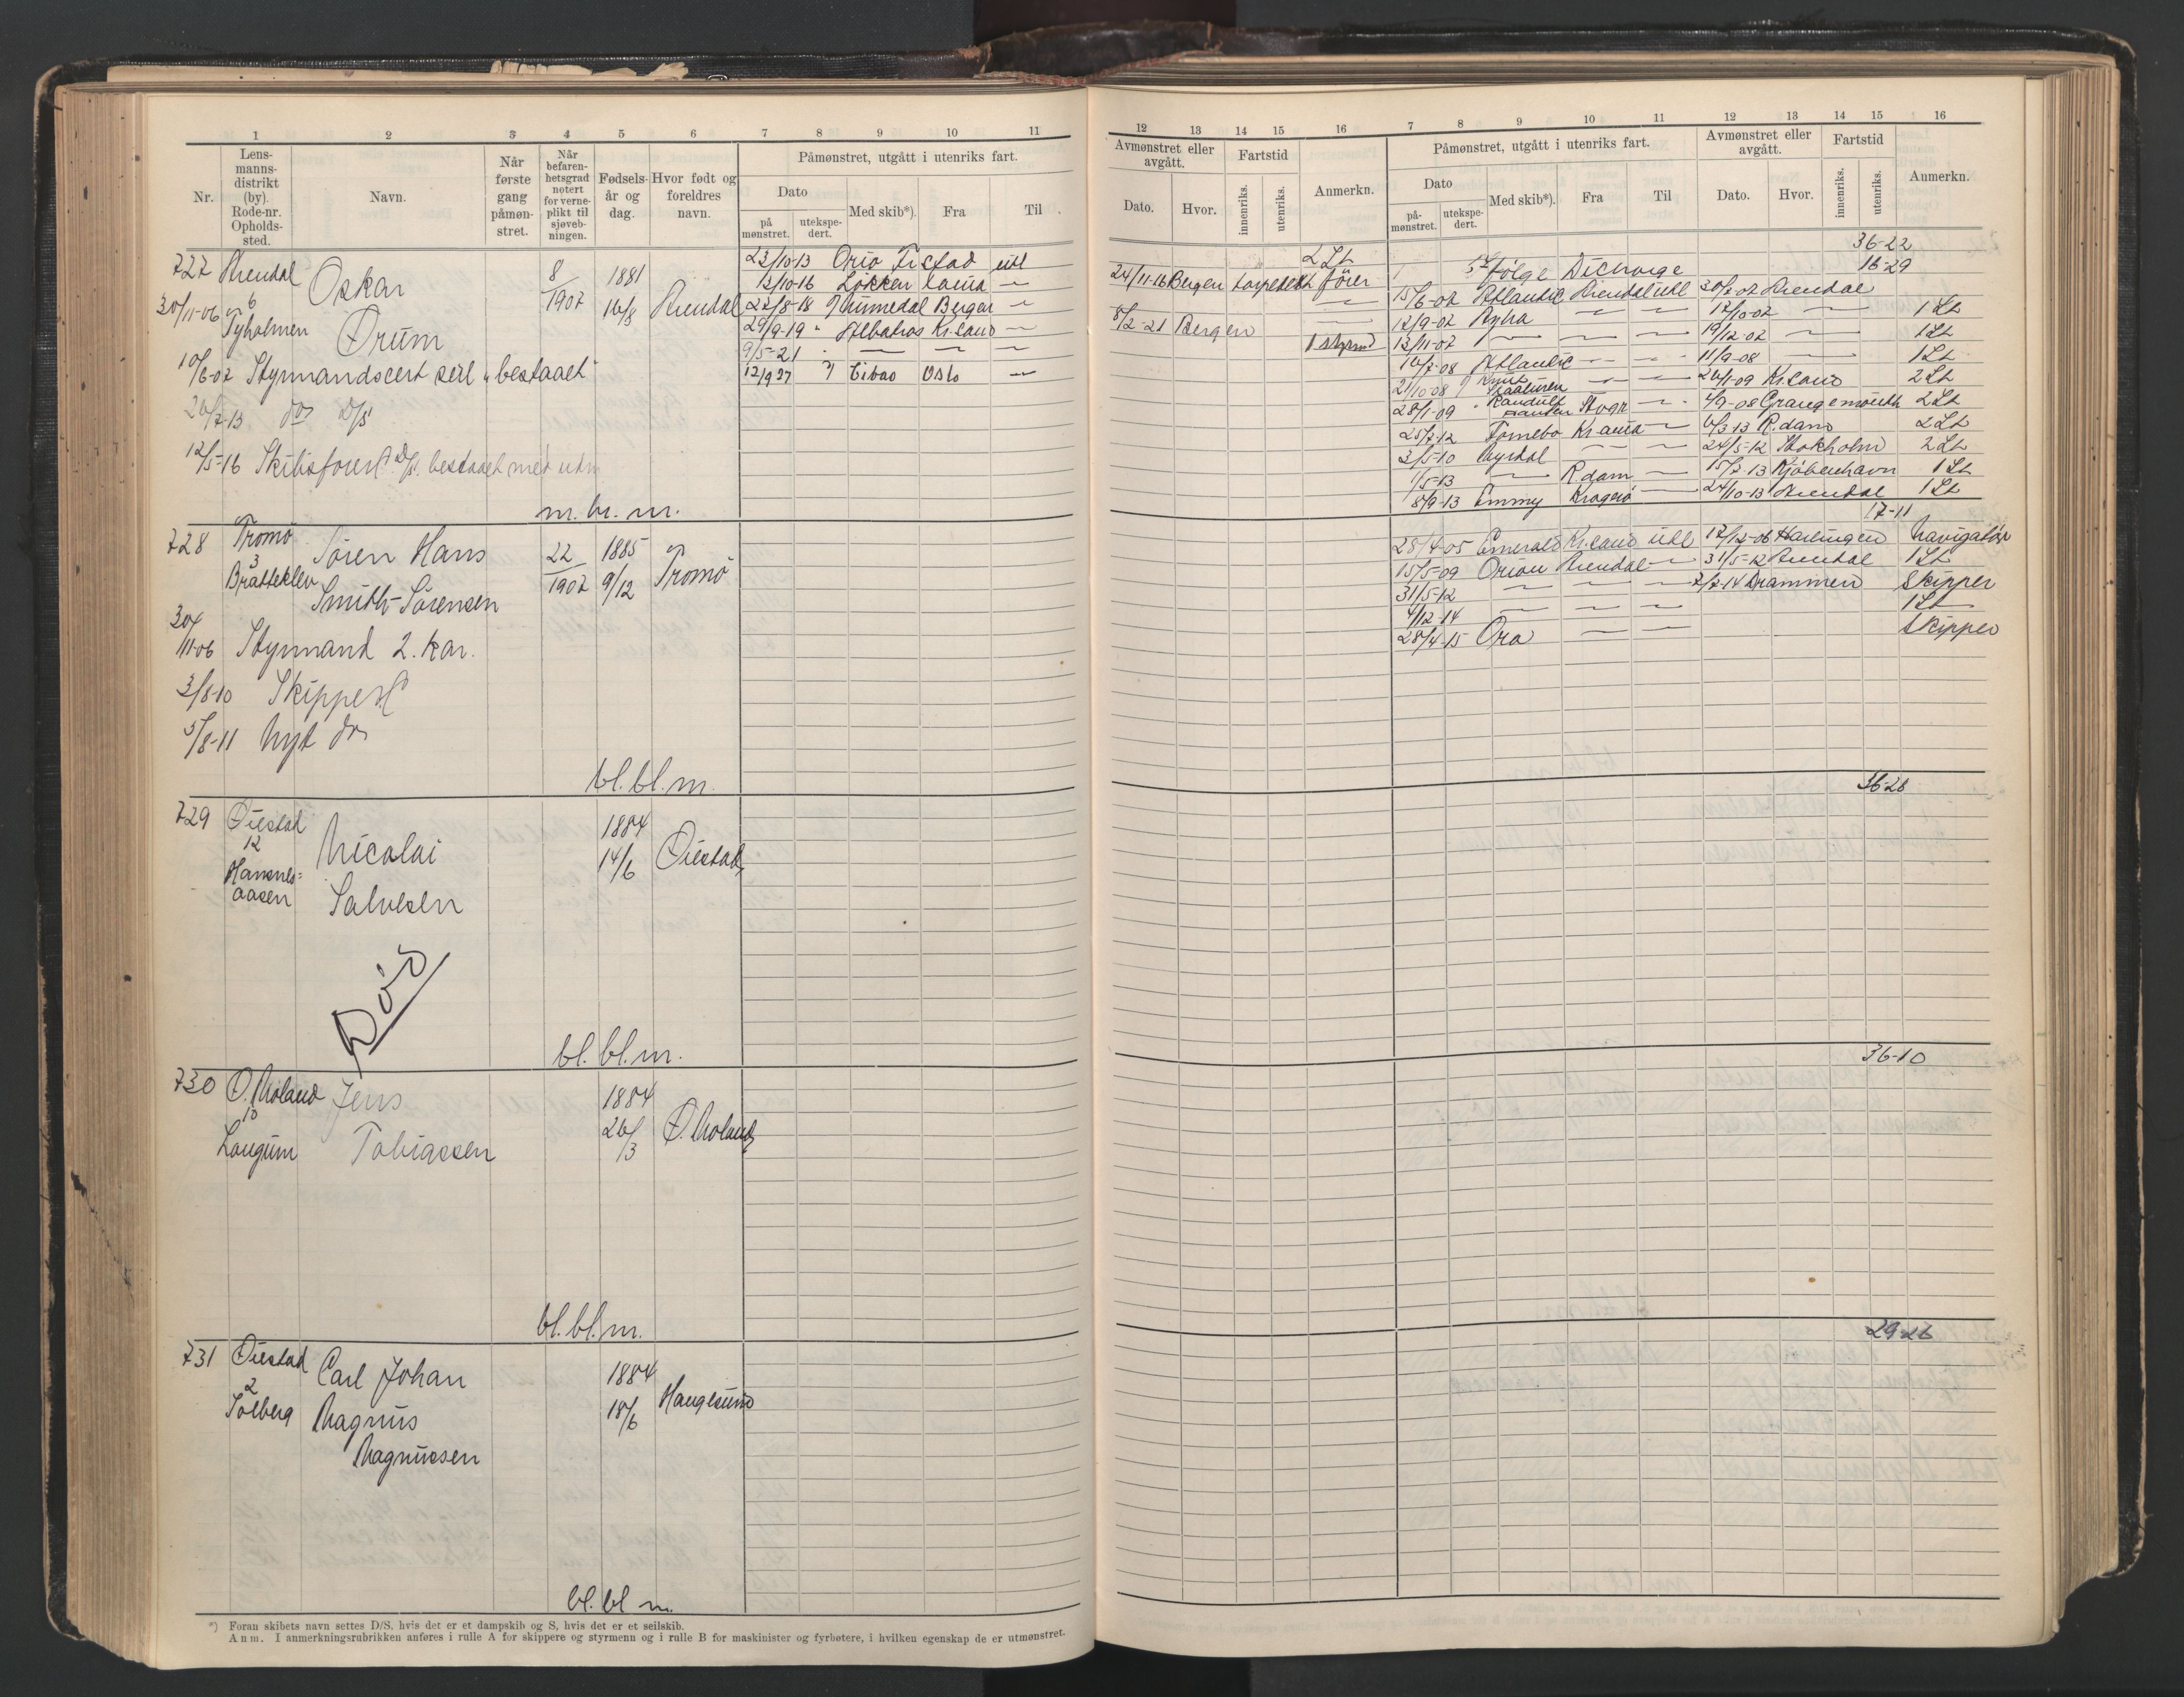 1 2 3 4 5 6 7 8 9 10 11
Nr.
Lens-
manns-
distrikt
(by).
Rode-nr.
Opholds-
sted.
Navn.
Når
første
gang
påmøn-
stret.
Når
befaren-
hetsgrad
notert
for verne-
plikt til
sjøveb-
ningen.
Fødsels-
år og
dag.
Hvor født og
foreldres
navn.
Påmønstret, utgått i utenriks fart.
Dato
på
mønstret.
utekspe-
dert.
Med skib*).
Fra
Til
727 Arendal
6
Tyholmen
Oskar
Ørum
8/1907
1881
16/8
Arendal
30/11-06
10/6-07 Styrmandscert seil "bestaaet"
26/7-13 do D/S
12/5-16 D/S bestaaet med utm
m. br. m.
23/10-13 Orio Tistad utl
12/10-16 Løkken Laura —
22/8-18 Nummedal Bergen —
29/9-19 " Albatros Kr.sand —
9/5-21 — — —
12/9 27 Bibao Oslo —
728 Tromø
3
Bratteklev
Søren Hans
Smith-Sørensen
22/1907
1885
9/12
Tromø
30/11-06 Styrmand 2. kar.
3/8-10
5/8-11 Nyt do
bl. bl. m.
729 Øiestad
12
Hansnes=
aasen
Nicolai
Salvesen
1884
14/6
Øiestad
Død
bl. bl. m.
730 Ø. Moland
10
Langum
Jens
Tobiassen
1884
26/3
Ø. Moland
bl. bl. m.
731 Øiestad
2
Solberg
Carl Johan
Magnus
Magnussen
1884
18/6
Haugesund
bl. bl m.
*) Foran skibets navn settes D/S, hvis det er et dampskib og S, hvis det er et seilskib.
Anm. I anmerkningsrubrikken anføres i rulle A for skippere og styrmenn og i rulle B for maskinister og fyrbøtere, i hvilken egenskap de er utmønstret.
12 13 14 15 16 7 8 9 10 11 12 13 14 15 16
Avmønstret eller
avgått.
Dato.
Hvor.
Fartstid
innenriks.
utenriks.
Anmerkn.
Påmønstret, utgått i utenriks fart.
Dato
på-
mønstret.
utekspe-
dert.
Med skib*).
Fra
Til
Avmønstret eller
avgått.
Dato.
Hvor.
Fartstid
innenriks.
utenriks.
Anmerkn.
2 St
24/11-16 Bergen
8/2-21 Bergen
1 styrmd
36-22
følge Discharge 16-29
15/6-07 Atlantic Arendal utl 20/7-07 Arendal
12/9-07 — — 17/10-07 — 1 St
12/11-07 — — — 19/12-07 — 1 St
16/7-08 Atlantic — — 11/9-08 — 1 St
21/10-08 — — 26/1-09 Kr.sand 2 St
28/1-09 — 4/9-08 Grangemouth 2 St
25/7-12 Tomebo Kr.ania — 6/3 13 R.dam 2 St
3/5-10 — — 24/5-12 Stokholm 2 St
1/5-13 — R.dam — 15/7-13 Kjøbenhavn 1 St
8/9-13 Emmy Kragerø — 24/10-13 Arendal 1 St
17-11
28/4-05 Emerald Kr.sand utl 17/12-06 Harlingen Navigatør
15/5-09 Orion Arendal — 31/5-12 Arendal 1 St
31/5-12 — — — 7/7-14 Drammen Skipper
4/12-14 — — — 1 St
28/4-15 Ora — — Skipper
36-28
36-10
29-26